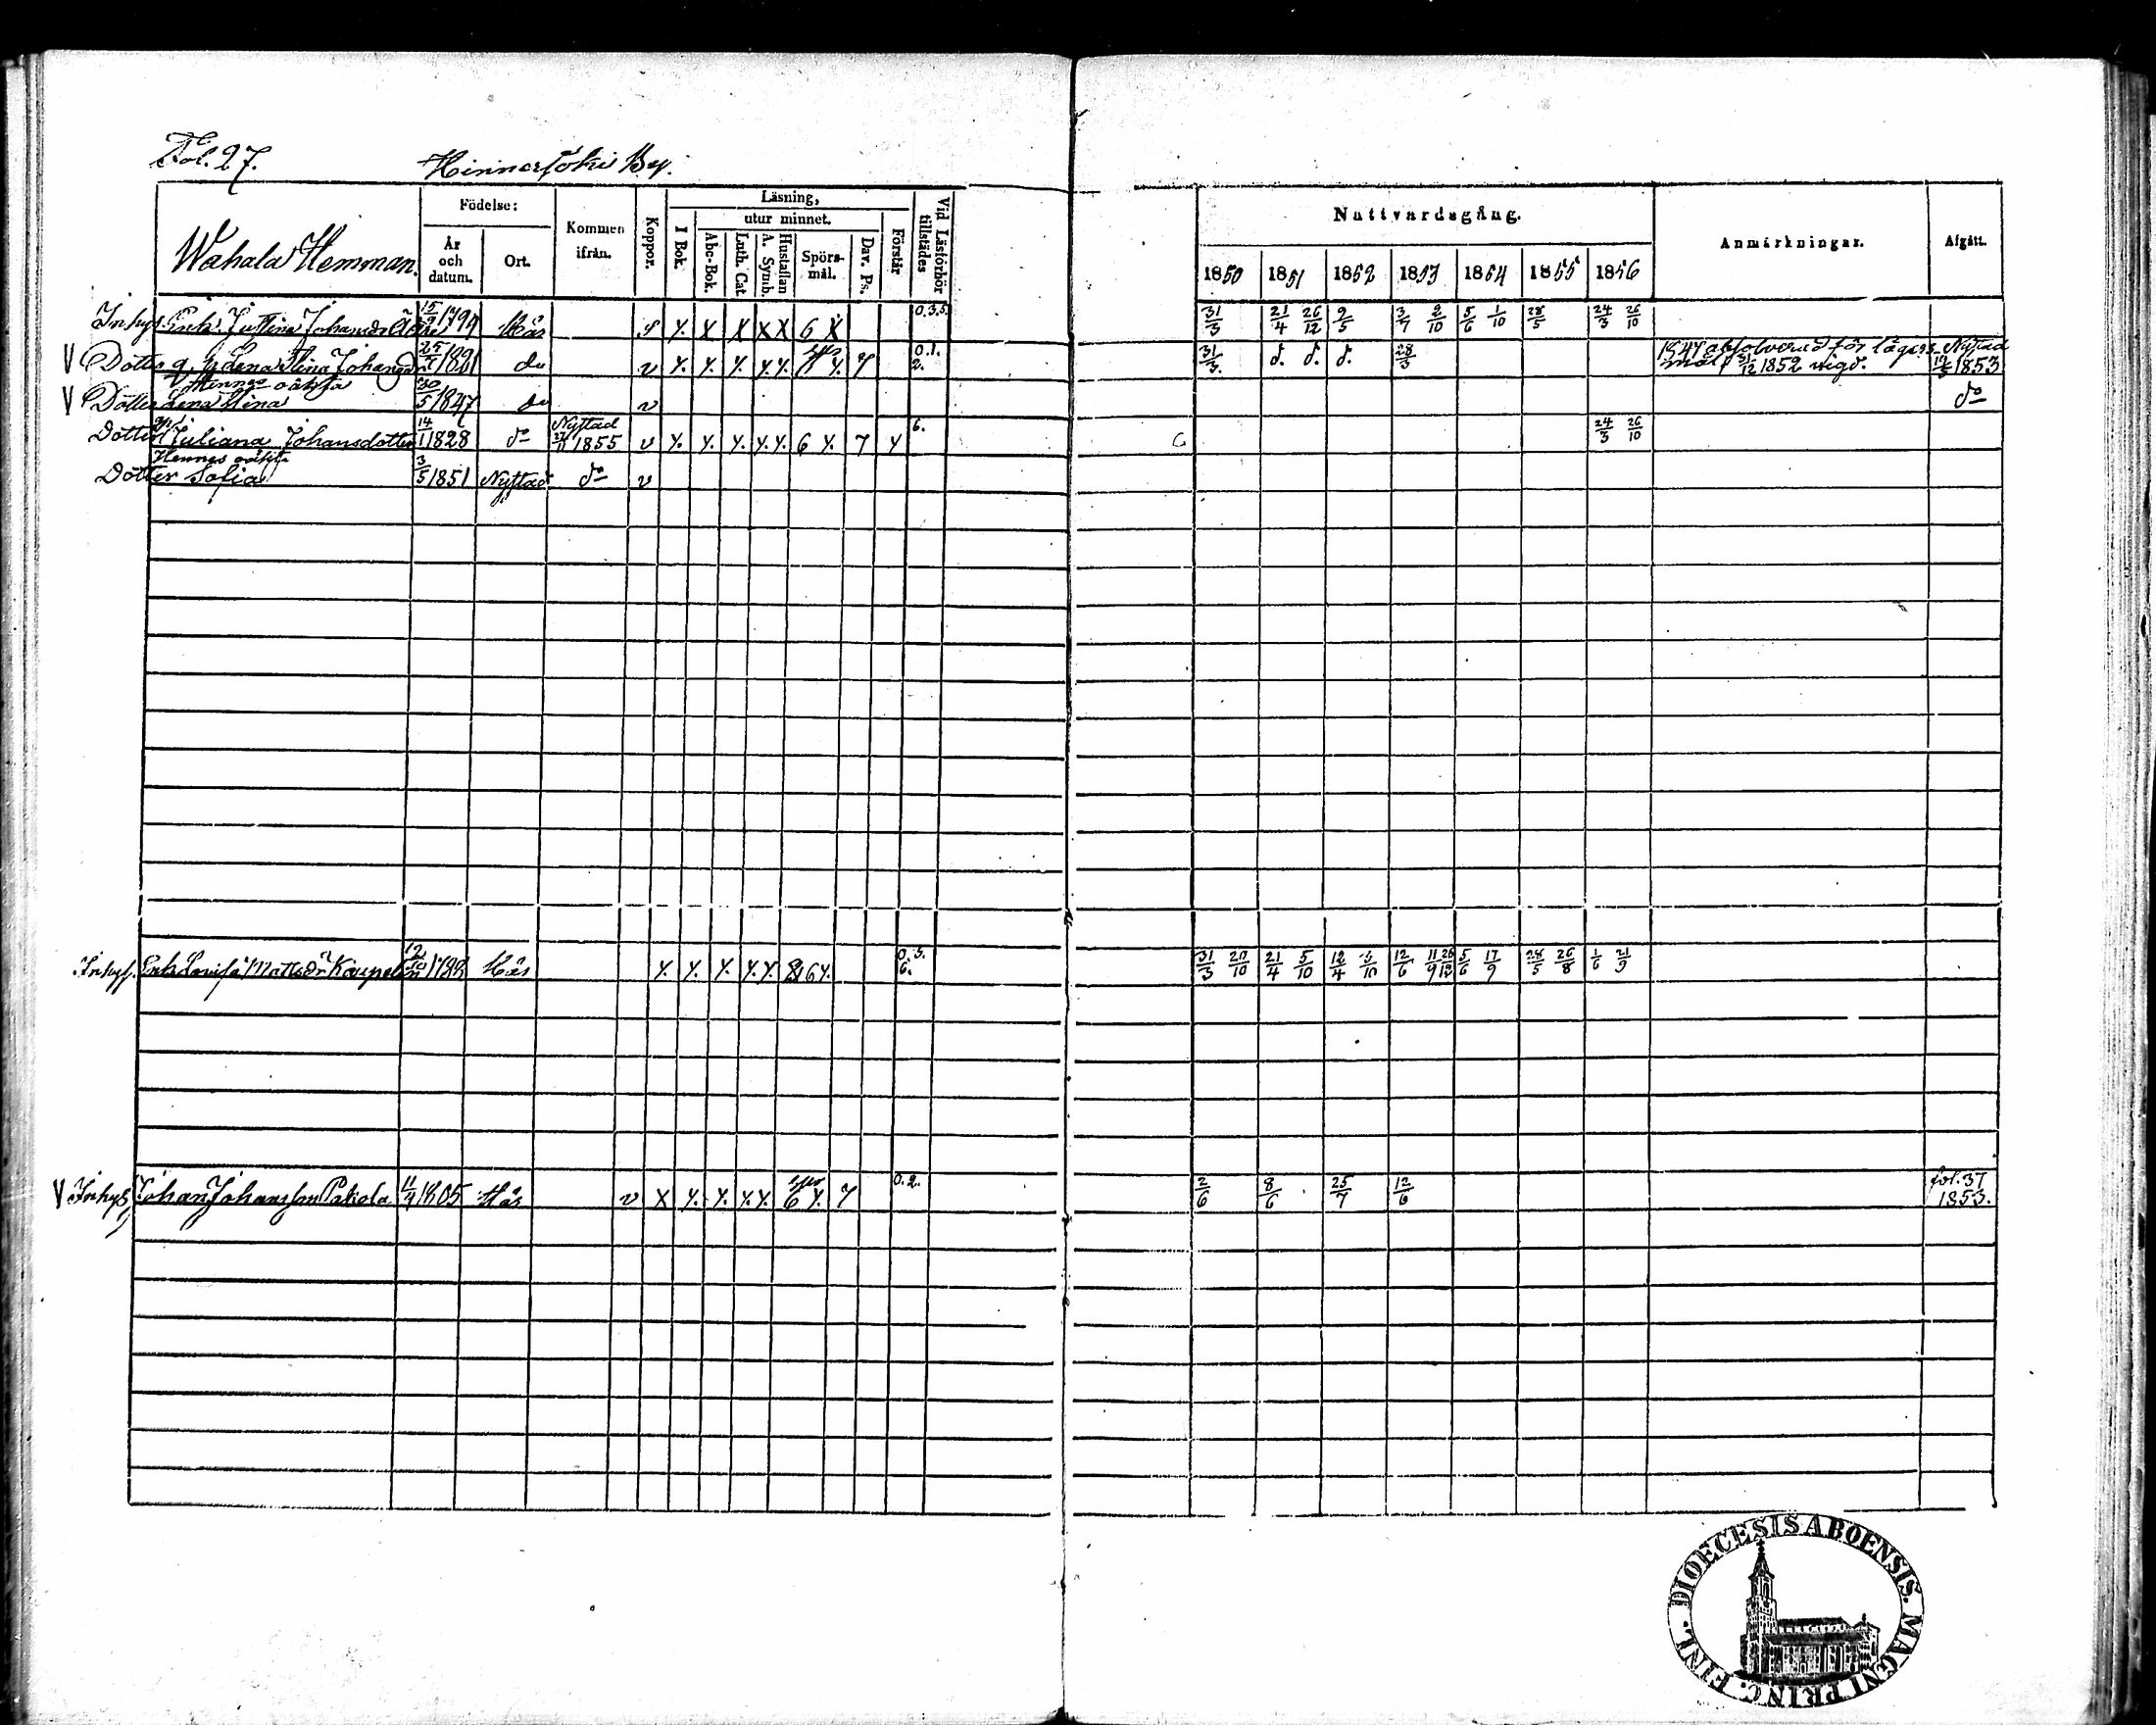 Fol. 27.
Hinnerjoki By.
Wahala Hemman.
Födelse:
År och datum.
Ort.
Kommen ifrån.
Koppor.
Läsning,
I Bok.
utur minnet.
Abc-Bok.
Luth. Cat.
Hustaflan A. Symb.
Spörsmål.
Dav. Ps.
Förstår
Vid Läsförhör tillstädes
Nattvardsgång.
1850 1851 1852 1853 1854 1855 1856
Anmärkningar.
Afgått.
Inhys. Enk. Justina Johansdr 15/9 1794 6 X 0.3.5. 31/3 21/4 26/12 9/5 3/7 2/10 5/6 1/10 28/5 24/3 26/10
V Dotter q. p. Lena Stina Johansdr 25/7 1821 do v 7 0.1. 2. 31/3 d. d. d. 28/3 1847 absolverad för lägers- Nystad
mål 31/12 1852 vigd. 1853
Hennes oäkta
V Dotter Lena Stina 30/5 1847 do v do
Dotter Juliana Johansdotter 14/1 1828 do Nystad 1855 v 6 7 6. 24/3 26/10
Hennes oäkta
Dotter Sofia 3/5 1851 Nystad do v
Inhys. Enk Lovisa Mattsdr 12/10 1788 0.3. 6. 31/3 20/10 21/4 5/10 12/4 12/6 11/9 5/6 17/9 28/5 26/8 1/6 21/9
V Inhys. Johan Johansson Pakola 11/4 1805 v X 6 7 0.2. 2/6 8/6 25/7 12/6 fol. 37
1853.
DIOECESIS ABOENSIS. MAGNI PRINC. FINL.